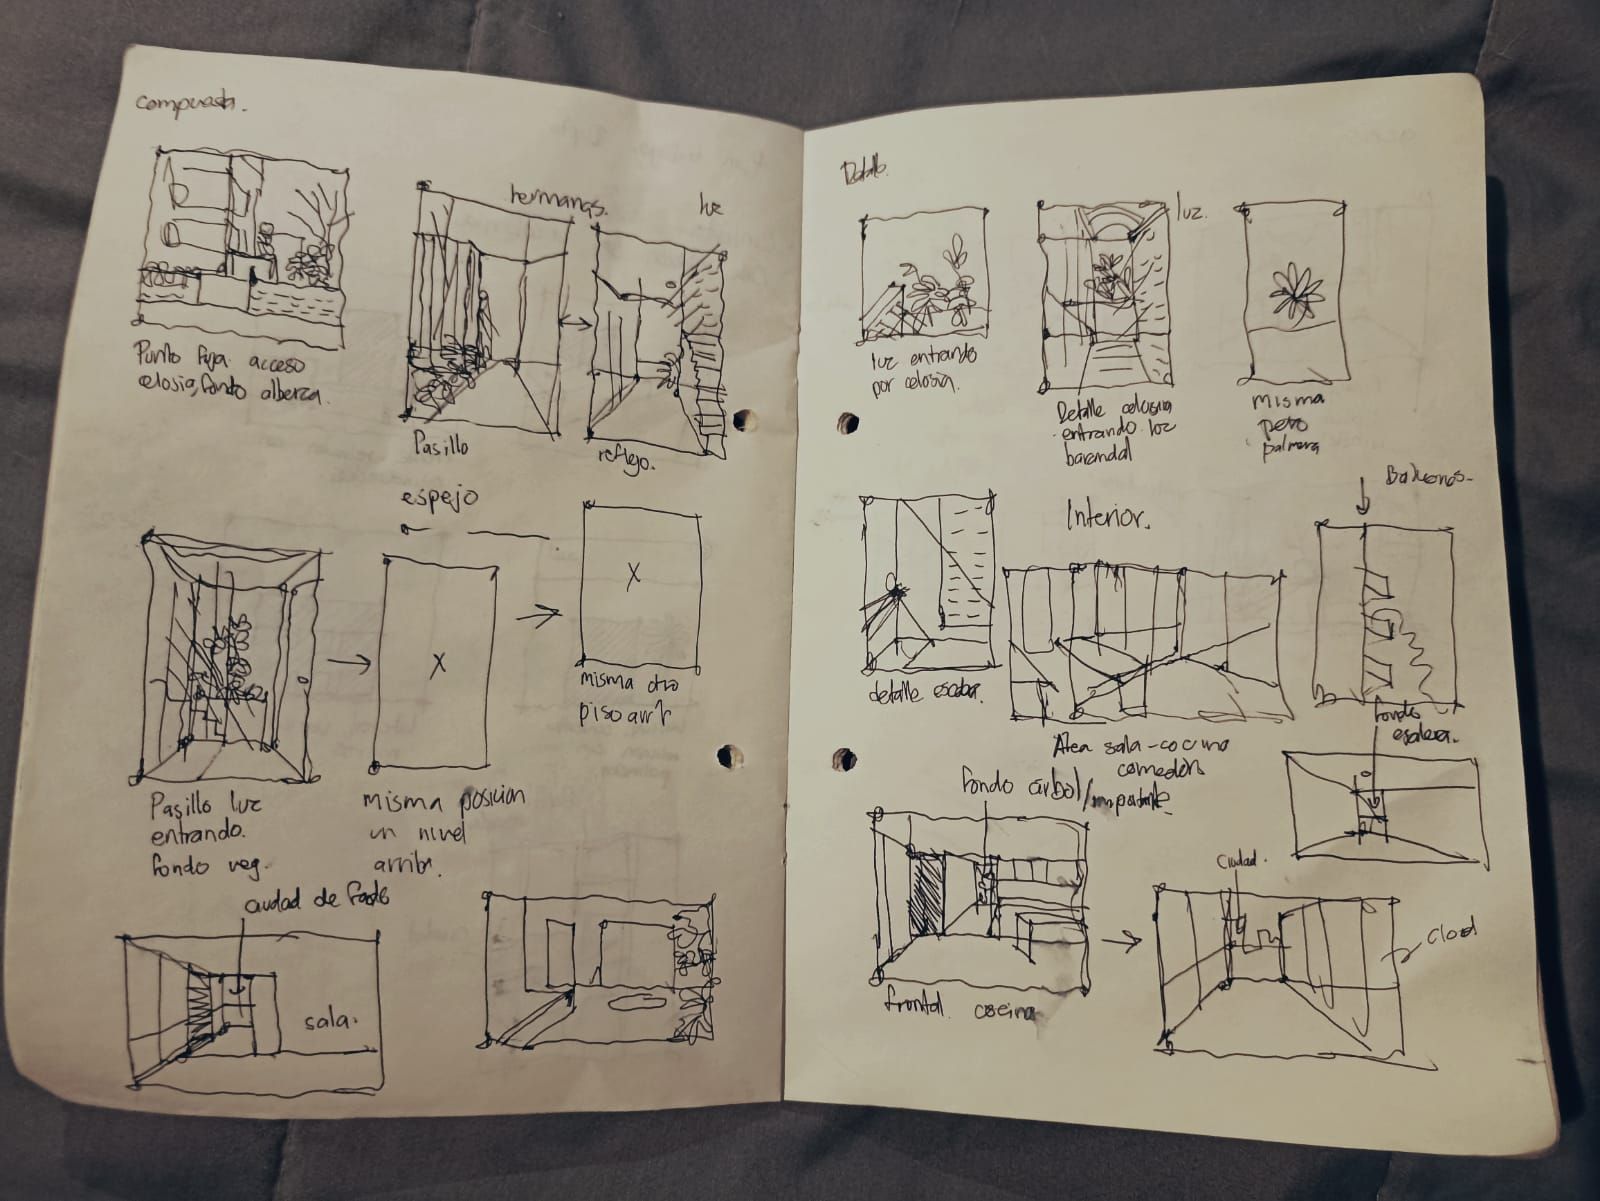 compuesta.
hermanas.
luz
Punto fuga acceso
celosia, fondo alberca.
Pasillo
reflejo.
espejo
X
X
misma otro
piso arrb
Pasillo luz
entrando.
fondo veg.
misma posicion
un nivel
arriba.
ciudad de fondo
sala.
Detalle.
luz.
luz entrando
por celosia.
Detalle celosia
entrando luz
barandal
misma
pero
palmera
Balcones.
Interior.
detalle escalera.
fondo
escalera.
Area sala-cocina
comedor
fondo árbol/importante
ciudad.
Closet
frontal cocina